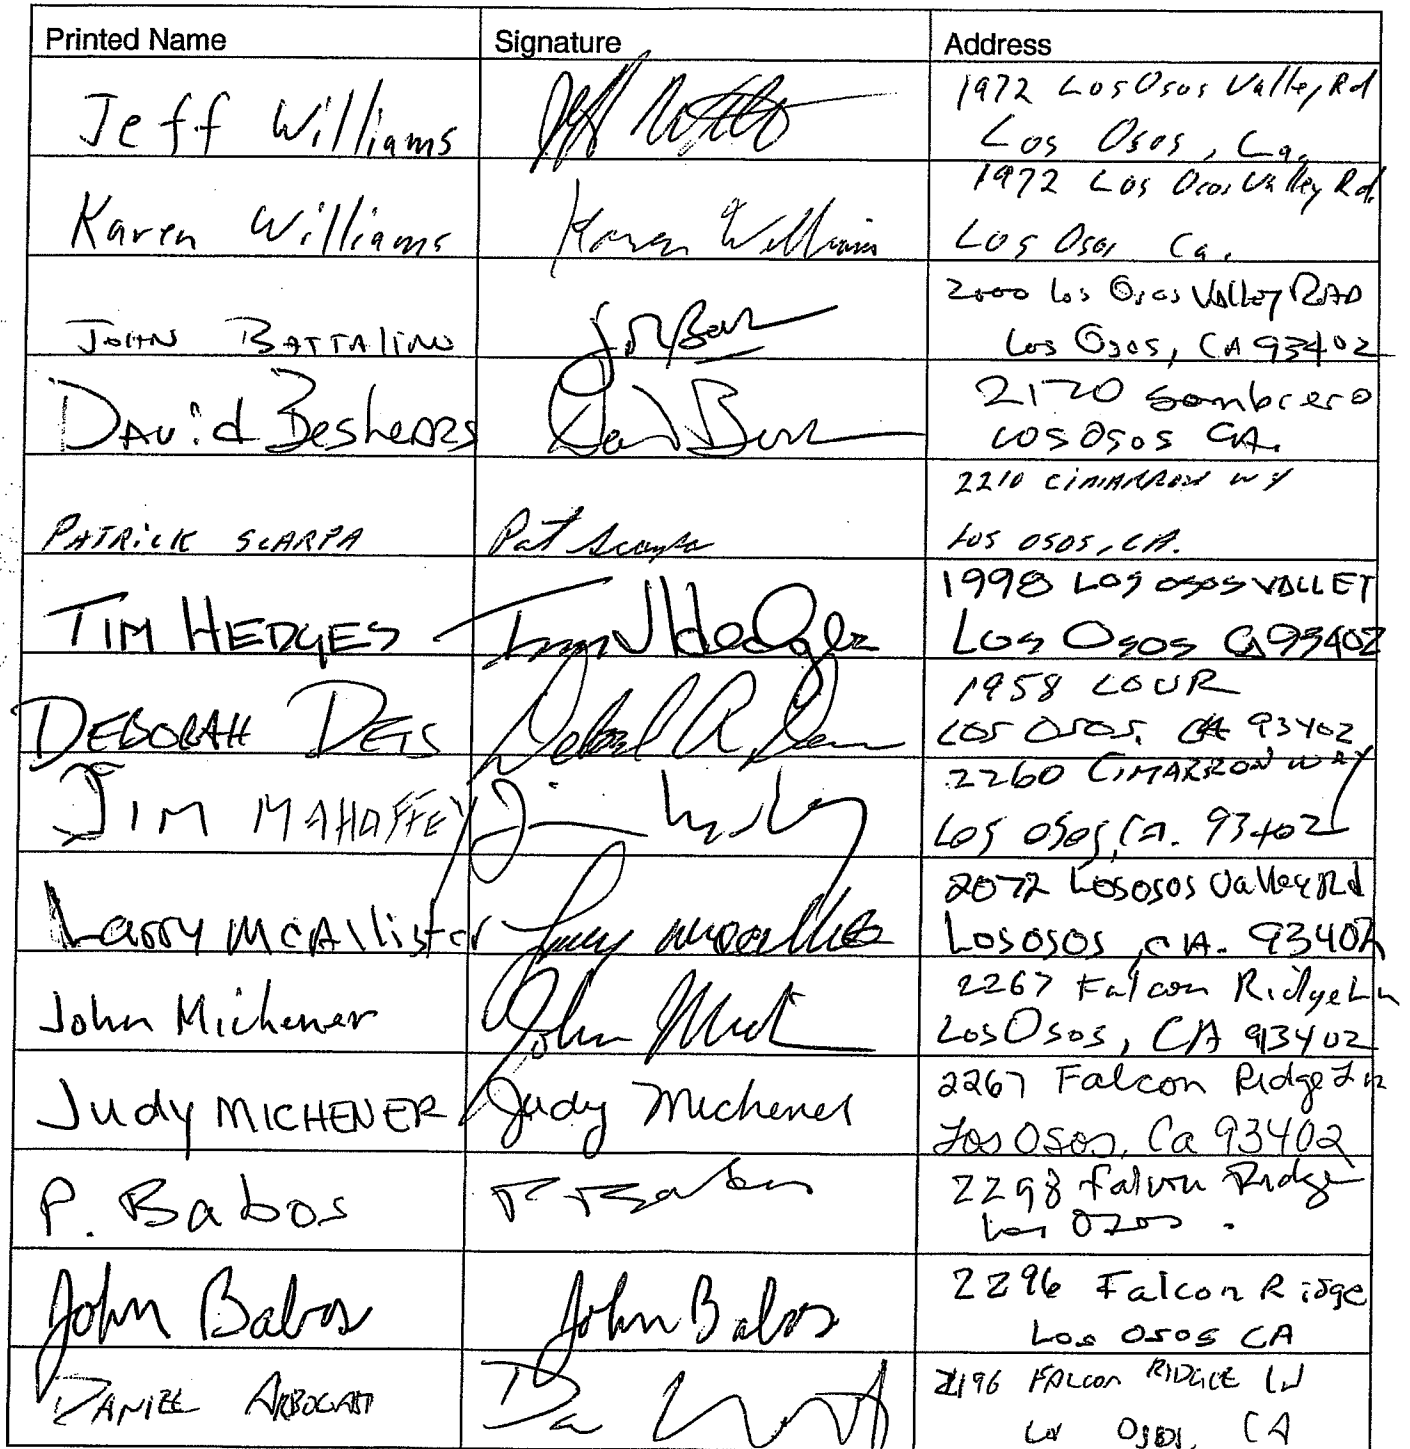 Printed Name Signature Address
Jeff Williams 1972 Los Osos Valley Rd
Los Osos, Ca.
Karen Williams Karen Williams 1972 Los Osos Valley Rd.
Los Osos Ca.
JOHN BATTALINO 2000 Los Osos Valley ROAD
Los Osos, CA 93402
DAVid BesheARs 2170 Sombrero
LOS OSOS CA.
PATRICK SCARPA Pat Scarpa 2210 CIMARRON WY
LOS OSOS, CA.
TIM HEDGES 1998 LOS OSOS VALLEY
Los Osos CA 93402
DEBORAH 1958 LOVR
LOS OSOS, CA 93402
JIM MAHAFFEY Jim 2260 CIMARRON WAY
LOS OSOS, CA. 93402
Larry McAllister Larry McAllister 2072 Lososos Valley Rd
Lososos, CA. 93402
John Michener John 2267 Falcon Ridge Ln
Los Osos, CA 93402
Judy MICHENER Judy Michener 2267 Falcon Ridge Ln
Los Osos, Ca 93402
P. Babos P Babos 2298 Falcon Ridge
Los Osos.
John Babos John Babos 2296 Falcon Ridge
Los Osos CA
DANIEL ARBOGAST 2196 FALCON RIDGE
Osos, CA